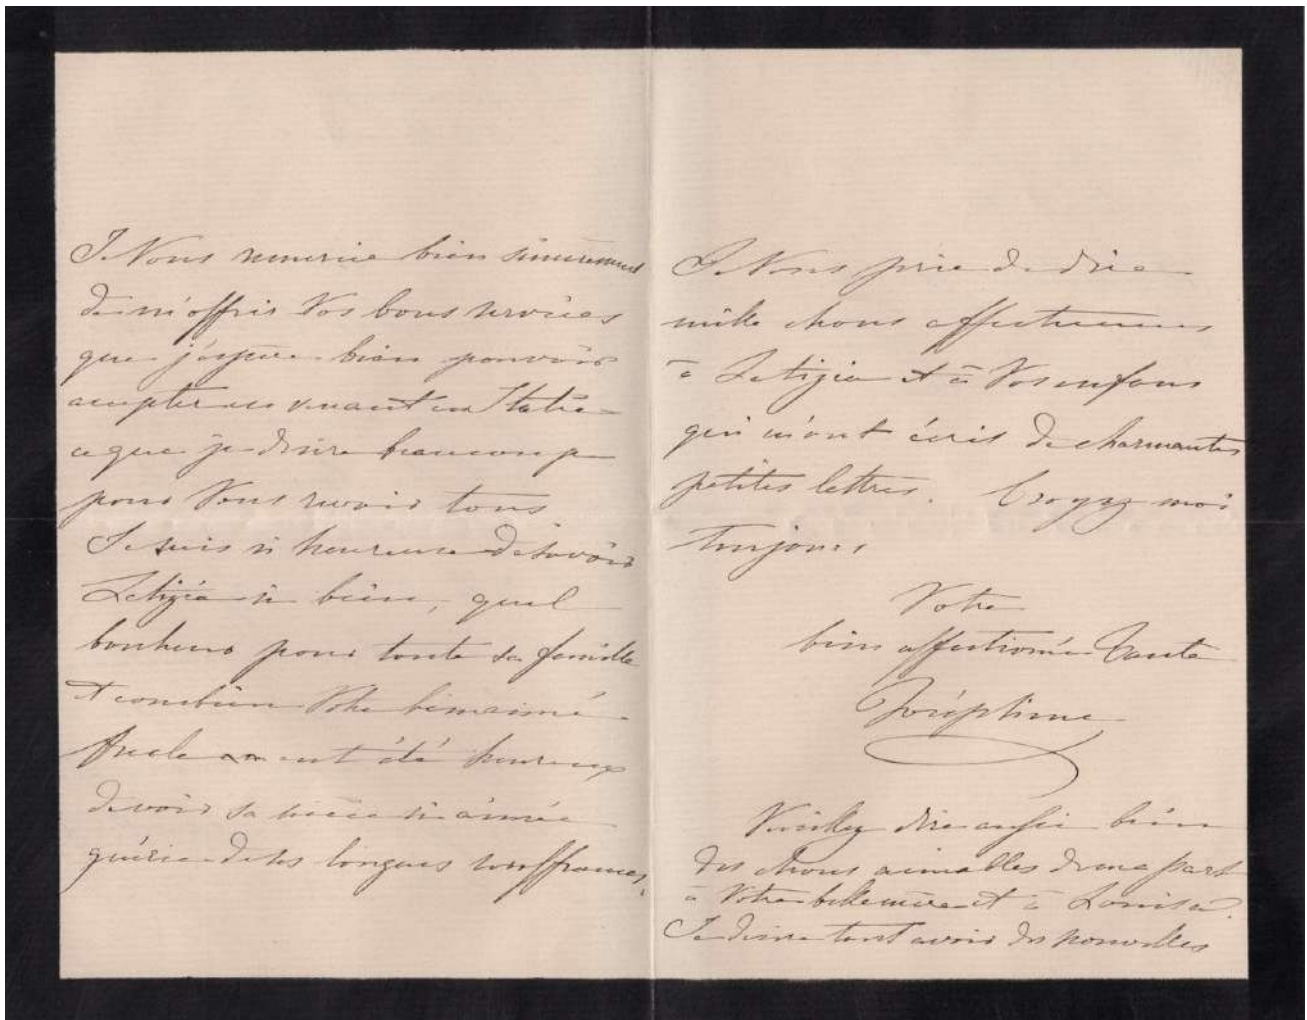 Je Vous remercie bien sincèrement
de m'offrir Vos bons services
que j'espère bien pouvoir
accepter en venant en Italie
ce que je désire beaucoup
pour Vous revoir tous
Je suis si heureuse de savoir
Letizia si bien, quel
bonheur pour toute sa famille
et combien Votre bienaimé
Oncle eut été heureux
de voir sa nièce si aimée
guérie de ses longues souffrances.
Je Vous prie de dire
mille choses affectueuses
à Letizia et à Vos enfans
qui m'ont écris de charmantes
petites lettres. Croyez moi
toujours
Votre
bien affectionée Tante
Joséphine
Veuillez dire aussi bien
des choses aimables de ma part
à Votre belle mère et à Louisa.
Je désire tant avoir des nouvelles